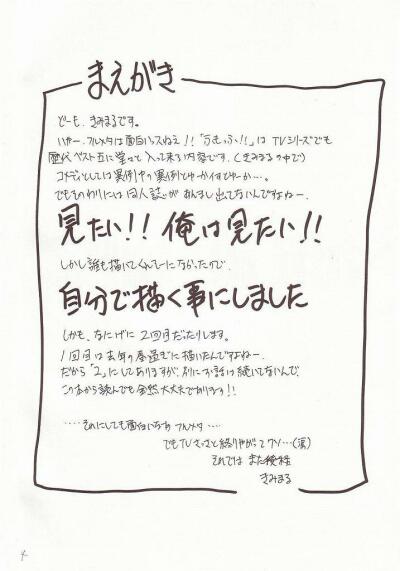 まえがき
どーも、きみまるです。
いやー、フルメタは面白いっスねえ!!「ふもっふ!!」はTVシリーズでも
歴代ベスト五に堂々と入って来る内容です。(きみまるの中で)
コメディとしては異例中の異例とゆーかイヤとゆーか…。
でもそのわりには同人誌があんまし出てないんですよねー。
見たい!! 俺は見たい!!
しかし誰も描いてくんそーになかったので、
自分で描く事にしました
しかも、なにげに2回目だったりします。
1回目は去年の春過ぎに描いたんですよねー。
だから「2」にしてありますが、別にお話は続いてないんで、
この本から読んでも全然大丈夫であります!!
....それにしても面白いなあ フルメタ ....
でもTVさっさと終りやがってクソ…(涙)
それでは また後程
きみまる
4